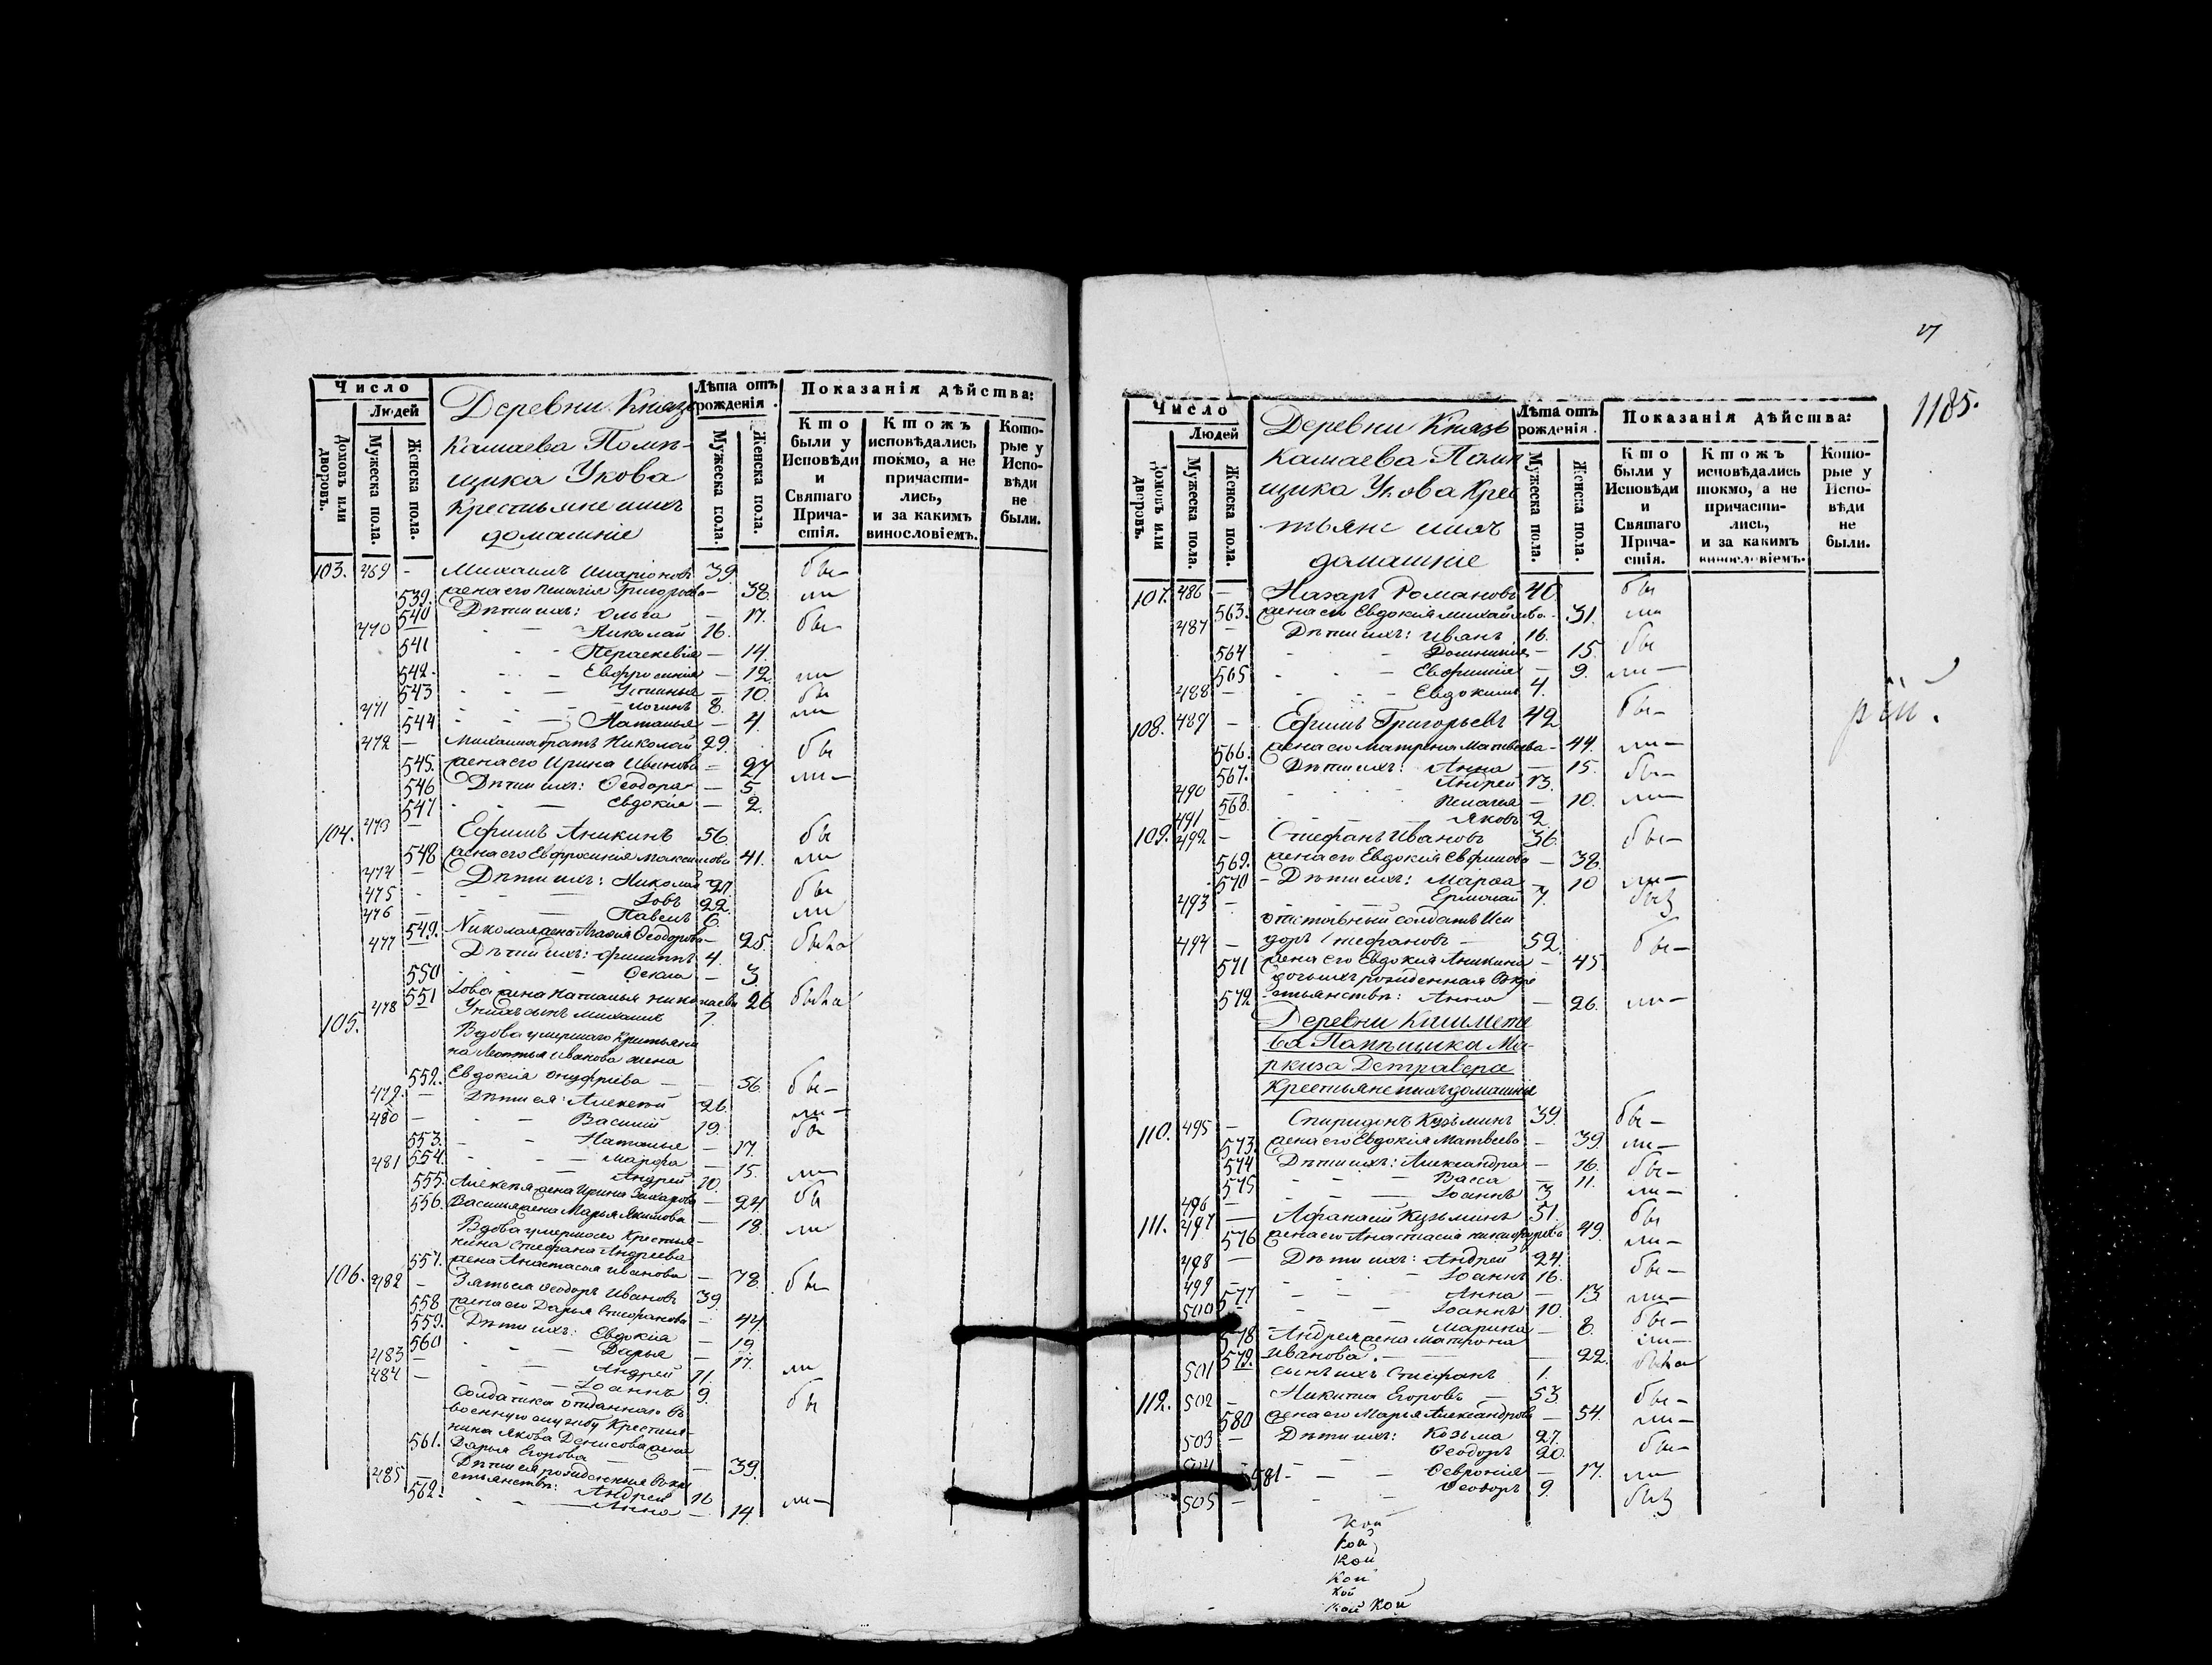 Число
Людей
Домовъ или дворовъ.
Мужеска пола.
Женска пола.
Деревни Князь
Камаева Помѣ-
щика Укова
Крестьяне ихъ
домашніе
Лѣта отъ рожденія.
Мужеска пола.
Женска пола.
Показанія дѣйства:
Кто были у Исповѣди и Святаго Прича-стія.
Ктожъ исповѣдались токмо, а не причасти-лись, и за какимъ винословіемъ.
Кото-рые у Испо-вѣди не были.
103. 469 - Михаилъ Иларіоновъ 39. бы-
539. жена его Пелагія Григорьева - 38. ли
540 Дѣти ихъ: Ольга - 17.
470 - Николай 16. бы
541 - - Параскевія - 14.
542. - - Евфросинія - 12. ли
543 - - Устинья - 10. бы
471 - - Логинъ 8.
544 - - Наталья - 4. ли
472 - Михаила братъ Николай 29.
545. жена его Ирина Иванова - 27 бы
546 Дѣти ихъ: Ѳеодора - 5. ли-
547 - - Евдокія - 2.
104. 473 - Ефимъ Аникинъ 56. бы
548 жена его Евфросинія Максимова 41. ли
474 - Дѣти ихъ: Николай 27.
475 - - Іовъ 22. бы
476 - - Павелъ 6. ли
549. Николая жена Агафія Ѳеодорова - 25. была
477 Дѣти ихъ: Филиппъ 4.
550 - - Ѳекла - 3.
551 Іова жена Наталья Николаева 26 была
478 У нихъ сынъ Михаилъ 1.
105. Вдова умершаго Крестьяни
на Леонтья Иванова жена
552. Евдокія Онуфріева - - 56. бы-
479. - Дѣти ея: Алексѣй 26. ли-
480 - - Василій 19. бы
553. - - Наталья - 17.
554. - - Марфа - 15.
481 - Андрей 10. ли
555. Алексѣя жена Ирина Захарова - 24. бы
556. Василья жена Марья Якимова - 18. ли
Вдова умершаго Крестья-
нина Стефана Андреева
557. жена Анастасія Иванова - 78. бы-
106. 482 - Зять ея Ѳеодоръ Ивановъ 39.
558 жена его Дарья Стефанова - 44.
559. Дѣти ихъ: Евдокія - 19.
560 - - Дарья - 17.
483 - - Андрей 11. ли
484 - - Іоаннъ 9. бы
Солдатка отданнаго въ
военную службу Крестья-
нина Якова Денисова жена
561. Дарья Егорова - - 39.
Дѣти ея рожденныя въ кре
485 - стьянствѣ: Андрей 16
562. - - Анна - 14. ли-
27
1185.
Число
Людей
Домовъ или дворовъ.
Мужеска пола.
Женска пола.
Деревни Князь
Камаева Помѣ
щика Укова Крес
тьяне ихъ
домашніе
Лѣта отъ рожденія.
Мужеска пола.
Женска пола.
Показанія дѣйства:
Кто были у Исповѣди и Святаго Прича-стія.
Ктожъ исповѣдались токмо, а не причасти-лись, и за какимъ винословіемъ.
Кото-рые у Испо-вѣди не были.
107. 486 - Назаръ Романовъ 40 бы
563. жена его Евдокія Михайлова - 31. ли
487 - Дѣти ихъ: Иванъ 16.
564 - - Домникія - 15. бы
565 - - Евфимія - 9. ли-
488 - - Евдокимъ 4.
108. 489 - Ефимъ Григорьевъ 42 бы-
рій.
566. жена его Матрена Матвѣева - 44. ли-
567. Дѣти ихъ: Анна - 15.
490 - Андрей 13. бы-
568. Пелагея - 10. ли-
491 - - Яковъ 2.
109. 492 - Стефанъ Ивановъ 36. бы-
569. жена его Евдокія Евфимова - 38.
570 - Дѣти ихъ: Марѳа - 10 ли-
493 - - Ермолай 7. бы
отставный солдатъ Иси
494 - доръ Стефановъ - 52. бы-
571 жена его Евдокія Аникина - 45.
дочь ихъ рожденная въ кре
572. стьянствѣ: Анна - 26. ли-
Деревни Кишмете
ва Памѣщика Ма-
ркиза Детраверсе
Крестьяне и ихъ домашніе
110. 495 - Спиридонъ Кузьминъ 39. бы-
573. жена его Евдокія Матвѣева - 39 ли-
574 Дѣти ихъ: Александра - 16. бы-
575 - - Васса - 11. ли-
496 - - Іоаннъ 3
111. 497 - Афанасій Кузьминъ 51. бы
576 жена его Анастасія Никифорова 49. ли-
498 - Дѣти ихъ: Андрей 24. бы-
499 - - Іоаннъ 16.
577 - - Анна - 13 ли-
500 - - Іоаннъ 10. бы-
578 - - Марина - 8. ли-
Андрея жена Матрона
579. Иванова. - - 22. была
501 сынъ ихъ Стефанъ 1.
112. 502 - Никита Егоровъ - 53. бы-
580 жена его Марья Александрова - 54. ли-
503 - Дѣти ихъ: Козьма 27. бы-
504 Ѳеодоръ 20.
581 - - Ѳевронія - 17. ли-
505 - - Ѳеодоръ 9. бы
Кой
Кой
Кой
Кой
Кой
Кой Кой